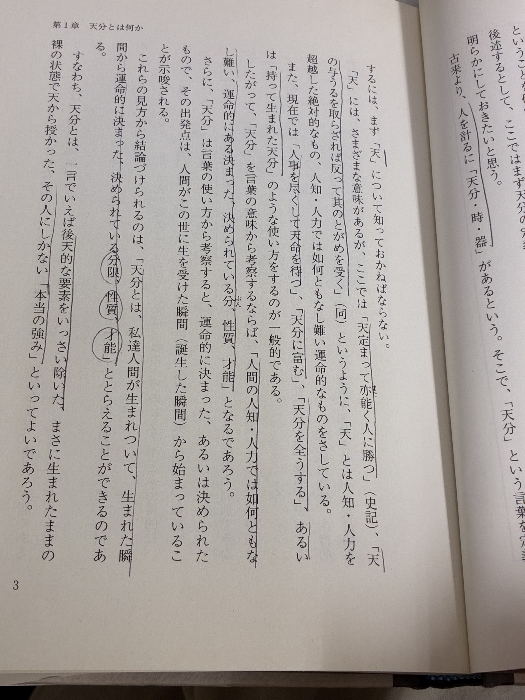 という
後述するとして、ここではまず天分
明らかにしておきたいと思う。
古来より、人を計るに「天分、時・器」があるという。そこで、「天分」という言葉を定義
第1章　天分とは何か
するには、まず「天」について知っておかねばならない。
「天」には、さまざまな意味があるが、ここでは「天定まって亦能く人に勝つ」（史記）、「天
の与うるを取らざれば反って其のとがめを受く」（同）というように、「天」とは人知・人力を
超越した絶対的なもの、人知・人力では如何ともなし難い運命的なものをさしている。
また、現在では「人事を尽くして天命を待つ」、「天分に富む」、「天分を全うする」、あるい
は「持って生まれた天分」のような使い方をするのが一般的である。
したがって、「天分」を言葉の意味から考察するならば、「人間の人知・人力では如何ともな
し難い、運命的にある決まった、決められている分、性質、才能」となるであろう。
さらに、「天分」は言葉の使い方から考察すると、運命的に決まった、あるいは決められた
もので、その出発点は、人間がこの世に生を受けた瞬間（誕生した瞬間）から始まっているこ
とが示唆される。
これらの見方から結論づけられるのは、「天分とは、私達人間が生まれついて、生まれた瞬
間から運命的に決まった、決められている分限、性質、才能」ととらえることができるのであ
る。
すなわち、天分とは、一言でいえば後天的な要素をいっさい除いた、まさに生まれたままの
裸の状態で天から授かった、その人にしかない「本当の強み」といってよいであろう。
3